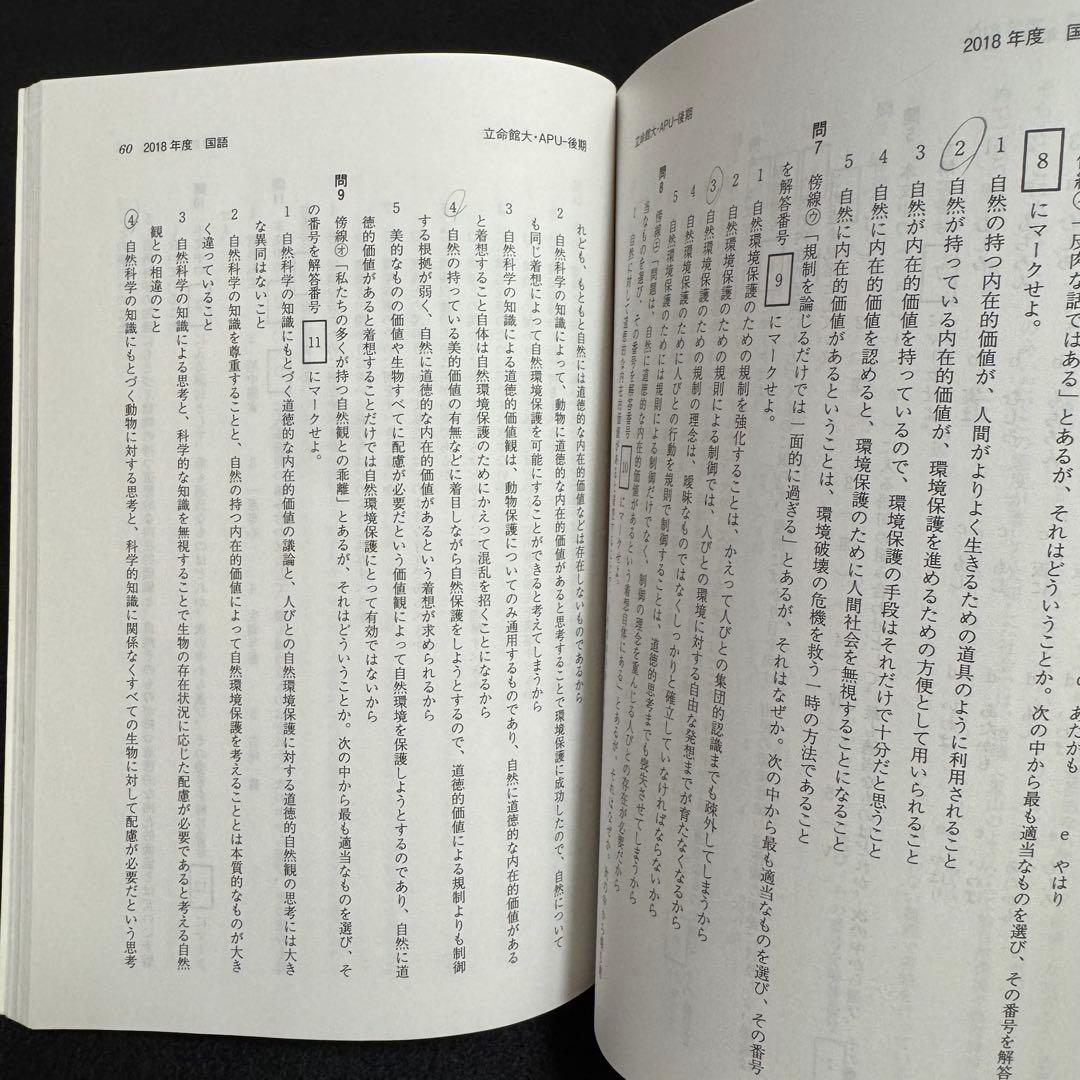 2018年度 国
立命館大・APU-後期
e やはり
傍線㋑「皮肉な話ではある」とあるが、それはどういうことか。次の中から最も適当なものを選び、その番号を解答
8 にマークせよ。
1 自然の持つ内在的価値が、人間がよりよく生きるための道具のように利用されること
2 自然が持っている内在的価値が、環境保護を進めるための方便として用いられること
3 自然が内在的価値を持っているので、環境保護の手段はそれだけで十分だと思うこと
4 自然に内在的価値を認めると、環境保護のために人間社会を無視することになること
5 自然に内在的価値があるということは、環境破壊の危機を救う一時の方法であること
問7 傍線㋒「規制を論じるだけでは一面的に過ぎる」とあるが、それはなぜか。次の中から最も適当なものを選び、その番号
を解答番号 9 にマークせよ。
1 自然環境保護のための規制を強化することは、かえって人びとの集団的認識までも疎外してしまうから
2 自然環境保護のための規則による制御では、人びとの環境に対する自由な発想までが育たなくなるから
3 自然環境保護のための規制の理念は、曖昧なものではなくしっかりと確立していなければならないから
4 自然環境保護のために人びとの行動を規則で制御することは、道徳的思考までも喪失させてしまうから
5 自然環境保護のためには規則による制御だけでなく、制御の理念を重んじる人びとの存在が必要だから
問8 傍線㋓「問題は、自然に道徳的な内在的価値があるという着想自体にある」とあるが、それはなぜか。
当なものを選び、その番号を解答番号 10 にマークせよ。
60 2018年度 国語
立命館大・APU-後期
れども、もともと自然には道徳的な内在的価値などは存在しないものであるから
2 自然科学の知識によって、動物に道徳的な内在的価値があると思考することで環境保護に成功したので、自然について
も同じ着想によって自然環境保護を可能にすることができると考えてしまうから
3 自然科学の知識による道徳的価値観は、動物保護についてのみ通用するものであり、自然に道徳的な内在的価値がある
と着想すること自体は自然環境保護のためにかえって混乱を招くことになるから
4 自然の持っている美的価値の有無などに着目しながら自然保護をしようとするので、道徳的価値による規制よりも制御
する根拠が弱く、自然に道徳的な内在的価値があるという着想が求められるから
5 美的なものの価値や生物すべてに配慮が必要だという価値観によって自然環境を保護しようとするのであり、自然に道
徳的価値があると着想することだけでは自然環境保護にとって有効ではないから
問9 傍線㋔「私たちの多くが持つ自然観との乖離」とあるが、それはどういうことか。次の中から最も適当なものを選び、そ
の番号を解答番号 11 にマークせよ。
1 自然科学の知識にもとづく道徳的な内在的価値の議論と、人びとの自然環境保護に対する道徳的自然観の思考には大き
な異同はないこと
2 自然科学の知識を尊重することと、自然の持つ内在的価値によって自然環境保護を考えることとは本質的なものが大き
く違っていること
3 自然科学の知識による思考と、科学的な知識を無視することで生物の存在状況に応じた配慮が必要であると考える自然
観との相違のこと
4 自然科学の知識にもとづく動物に対する思考と、科学的知識に関係なくすべての生物に対して配慮が必要だという思考